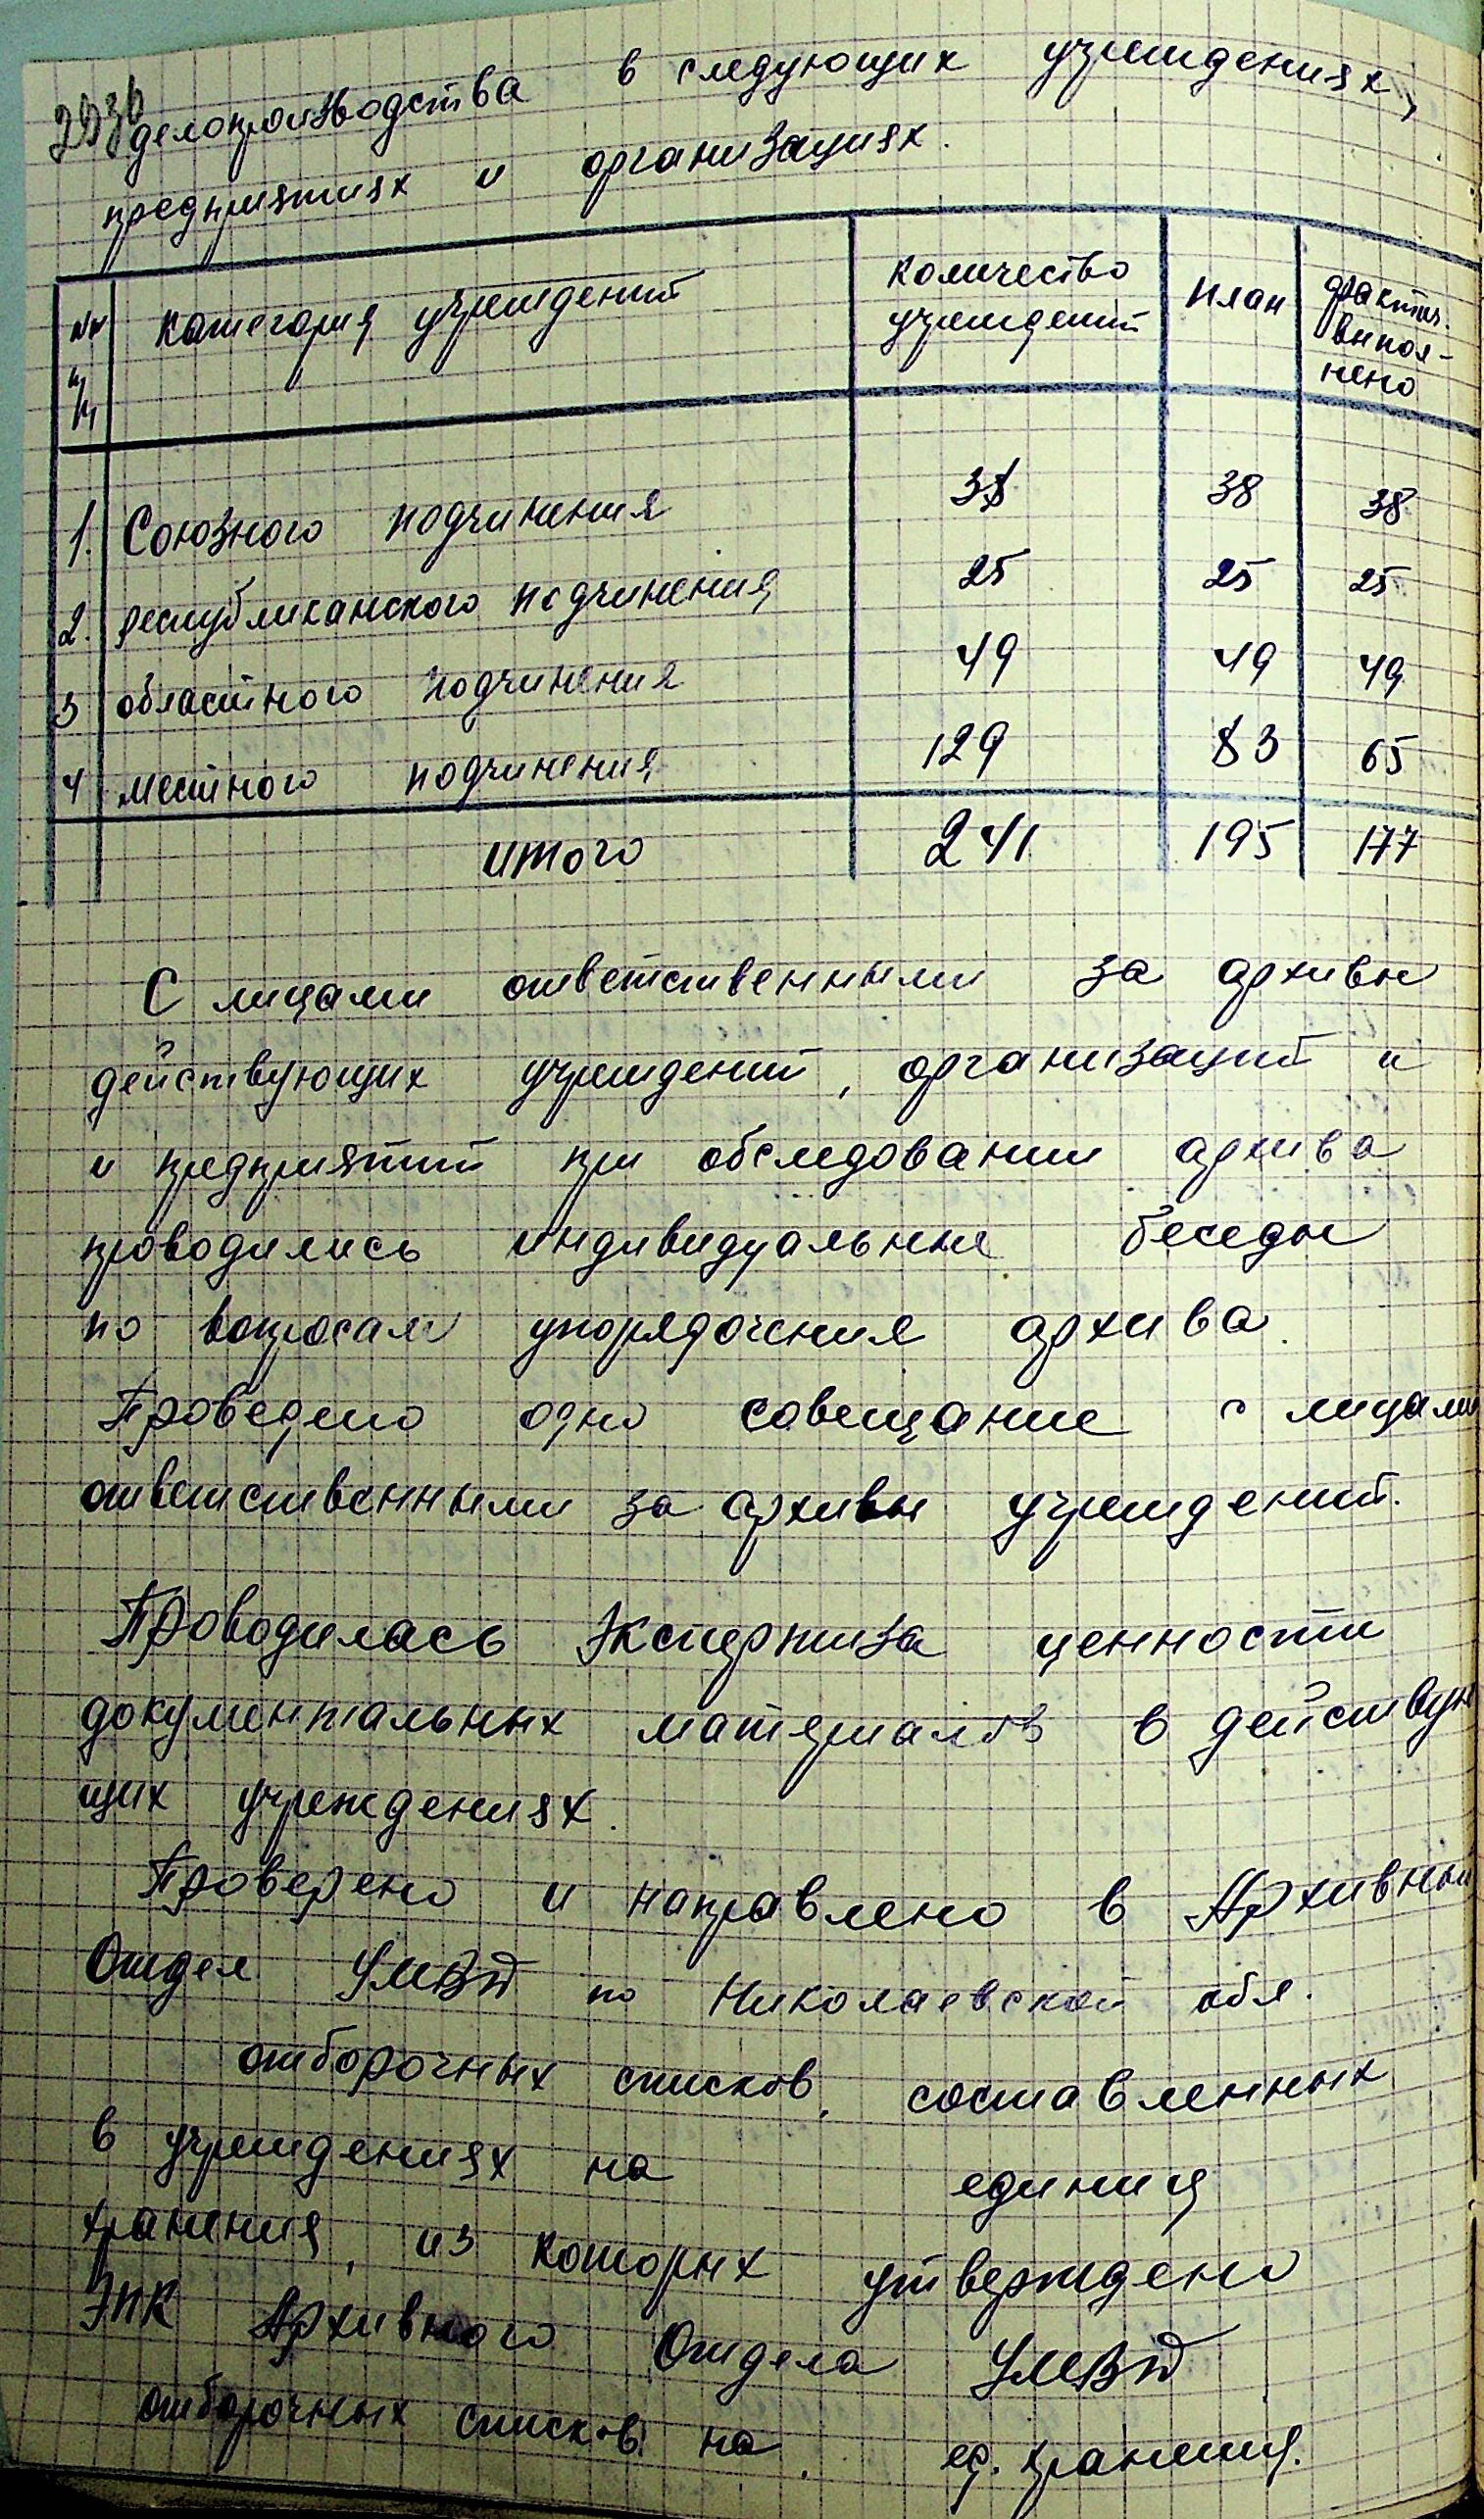 делопроизводства в следующих учреждениях,
предприятиях и организациях.
№№ п/п категория учреждений количество учреждений план фактич. выпол-нено
1. Союзного подчинения 38 38 38
2. республиканского подчинения 25 25 25
3 областного подчинения 49 49 49
4 местного подчинения 129 83 65
итого 241 195 177
С лицами ответственными за архивы
действующих учреждений, организаций и
и предприятий при обследовании архива
проводились индивидуальные беседы
по вопросам упорядочения архива.
Проведено одно совещание с лицами
ответственными за архивы учреждений.
Проводилась экспертиза ценности
документальных материалов в действую
щих учреждениях.
Проверено и направлено в Архивный
Отдел УМВД по Николаевской обл.
отборочных списков, составленных
в учреждениях на единиц
хранения, из которых утверждено
ЭПК Архивного Отдела УМВД
отборочных списков на ед. хранения.